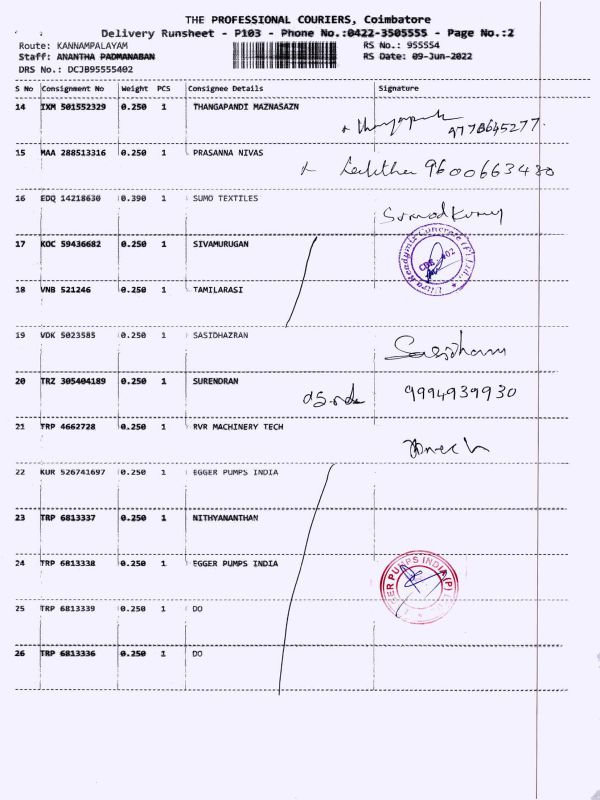 THE PROFESSIONAL COURIERS, Coimbatore
Delivery Runsheet - P103 - Phone No.:0422-3505555 - Page No.:2
Route: KANNAMPALAYAM RS No.: 955554
Staff: ANANTHA PADMANABAN RS Date: 09-Jun-2022
DRS No.: DCJB95555402
S No Consignment No Weight PCS Consignee Details Signature
14 IXM 501552329 0.250 1 THANGAPANDI MAZNASAZN
9778645277
15 MAA 288513316 0.250 1 PRASANNA NIVAS
Lalitha 9600663480
16 EDQ 14218630 0.390 1 SUMO TEXTILES
17 KOC 59436682 0.250 1 SIVAMURUGAN
Ultra Readymix Concrete (P) Ltd.,
CBE - 402
18 VNB 521246 0.250 1 TAMILARASI
19 VDK 5023585 0.250 1 SASIDHAZRAN
Sasidharan
20 TRZ 305404189 0.250 1 SURENDRAN
9994939930
21 TRP 4662728 0.250 1 RVR MACHINERY TECH
22 KUR 526741697 0.250 1 EGGER PUMPS INDIA
23 TRP 6813337 0.250 1 NITHYANANTHAN
24 TRP 6813338 0.250 1 EGGER PUMPS INDIA
EGGER PUMPS INDIA (P)
25 TRP 6813339 0.250 1 DO
26 TRP 6813336 0.250 1 DO